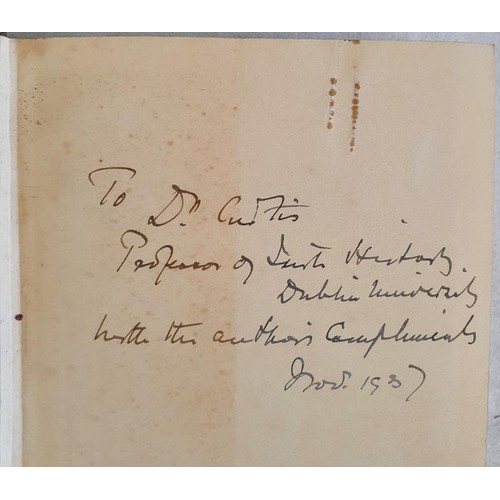 To
Dr Curtis
Professor of Irish History,
Dublin University
with the author's Compliments
Nov. 1937